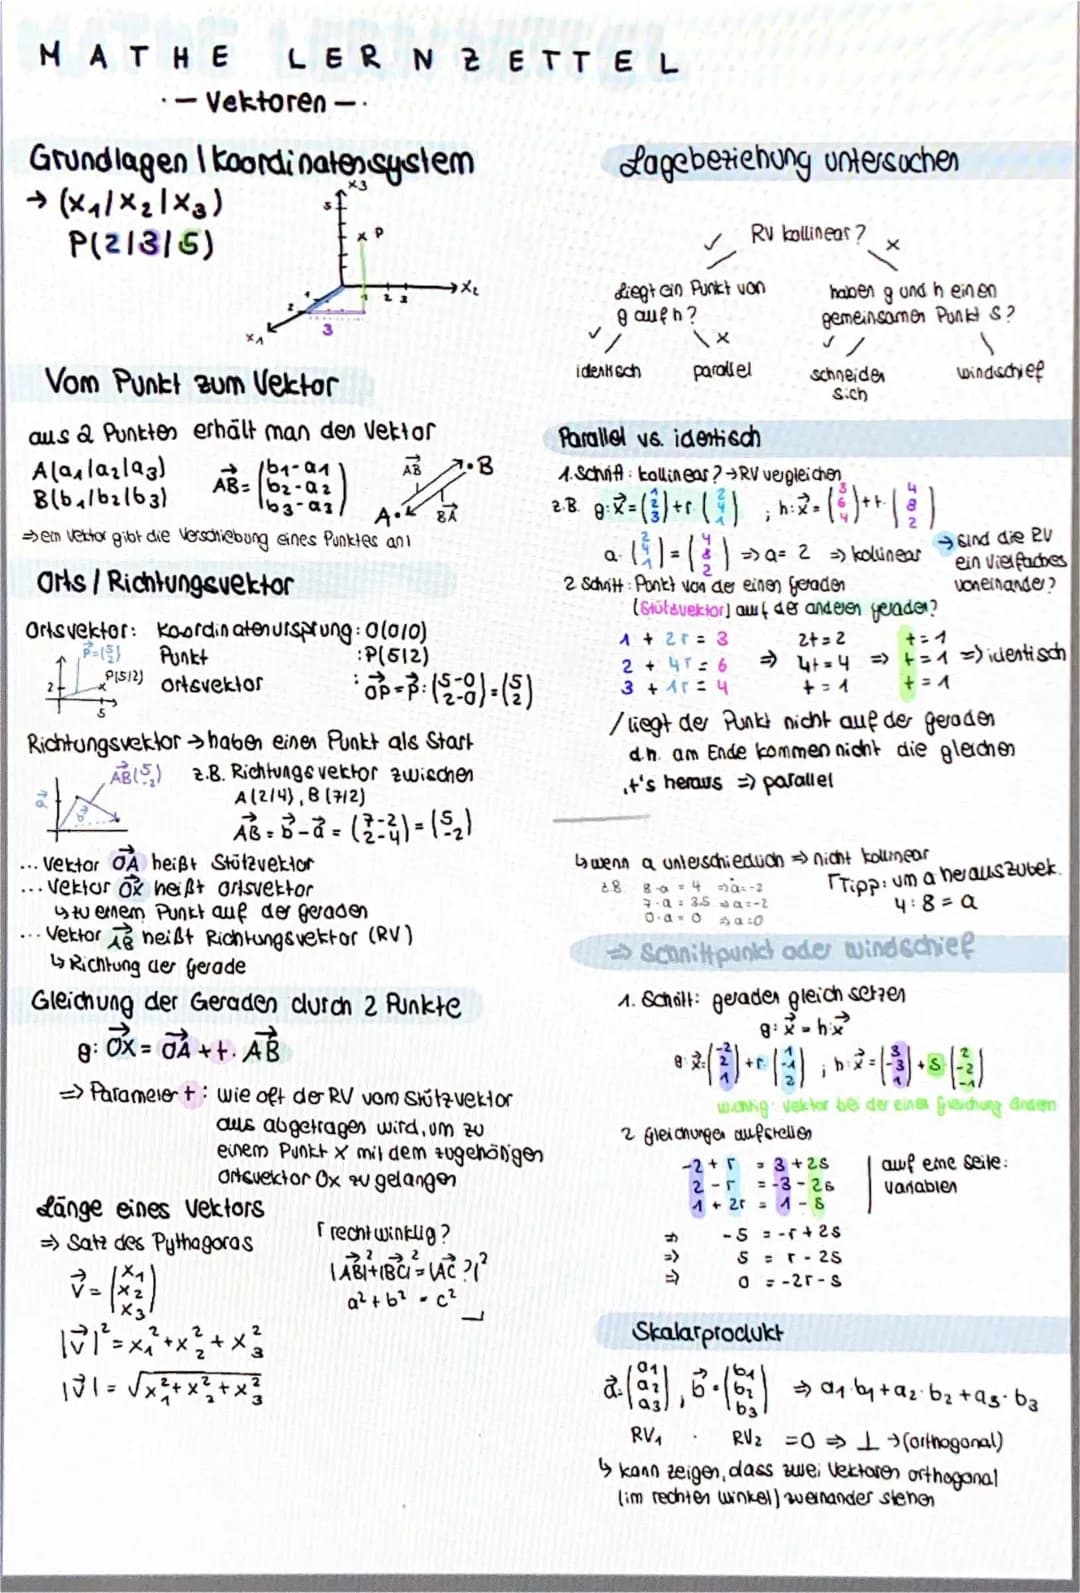 MATHE LERNZETTEL
·— Vektoren —·
Grundlagen / Koordinatensystem
→ (x₁/x₂/x₃)
P(2/3/5)
x₃
5
x P
x₂
1 2 3
1
2
3
x₁
Vom Punkt zum Vektor
aus 2 Punkten erhält man den Vektor
A(a₁/a₂/a₃)
B(b₁/b₂/b₃)
AB = (b₁-a₁ b₂-a₂ b₃-a₃)
AB
B
A
BA
⇒ ein Vektor gibt die Verschiebung eines Punktes an!
Orts / Richtungsvektor
Ortsvektor: Koordinatenursprung: O(0/0)
Punkt : P(5/2)
Ortsvektor : OP = p: (5-0 2-0) = (5 2)
p=(5 2)
P(5/2)
2
5
Richtungsvektor → haben einen Punkt als Start
AB(5 -2)
z.B. Richtungsvektor zwischen
A(2/4), B(7/2)
AB = b - a = (7-2 2-4) = (5 -2)
... Vektor OA heißt Stützvektor
... Vektor OX heißt Ortsvektor
↳ zu einem Punkt auf der Geraden
... Vektor AB heißt Richtungsvektor (RV)
↳ Richtung der Gerade
Gleichung der Geraden durch 2 Punkte
g: OX = OA + t · AB
⇒ Parameter t: wie oft der RV vom Stützvektor
aus abgetragen wird, um zu
einem Punkt X mit dem zugehörigen
Ortsvektor Ox zu gelangen
Länge eines Vektors
⇒ Satz des Pythagoras
v = (x₁ x₂ x₃)
|v|² = x₁² + x₂² + x₃²
|v| = √x₁² + x₂² + x₃²
rechtwinklig?
|AB|² + |BC|² = |AC?|²
a² + b² = c²
Lagebeziehung untersuchen
RV kollinear?
✓ x
Liegt ein Punkt von
g auf h?
haben g und h einen
gemeinsamen Punkt S?
✓ x
✓
identisch
parallel
schneiden
sich
windschief
Parallel vs. identisch
1. Schritt: kollinear? → RV vergleichen
z.B. g: x = (1 2 3) + r · (2 4 1) ; h: x = (3 6 4) + t · (4 8 2)
a · (2 4 1) = (4 8 2) ⇒ a = 2 ⇒ kollinear
→ sind die RV
ein Vielfaches
voneinander?
2 Schritt: Punkt von der einen Geraden
(Stützvektor) auf der anderen Geraden?
1 + 2r = 3
2 + 4r = 6
3 + 1r = 4
⇒
2t = 2
4t = 4
t = 1
⇒
t = 1
t = 1
t = 1
⇒ identisch
/ liegt der Punkt nicht auf der Geraden
d.h. am Ende kommen nicht die gleichen
t's heraus ⇒ parallel
↳ wenn a unterschiedlich ⇒ nicht kollinear
z.B. 8·a = 4 ⇒ a = -2
7·a = 3.5 ⇒ a = -2
0·a = 0 ⇒ a = 0
Tipp: um a herauszubek.
4 : 8 = a
⇒ Schnittpunkt oder windschief
1. Schritt: Geraden gleich setzen
g: x = h: x
g: x = (-2 2 1) + r · (1 -1 2) ; h: x = (3 -3 1) + s (2 -2 -1)
wichtig: Vektor bei der einen Gleichung ändern
2 Gleichungen aufstellen
-2 + r = 3 + 2s
2 - r = -3 - 2s
1 + 2r = 1 - s
auf eine Seite:
Variablen
⇒ -5 = -r + 2s
⇒ 5 = r - 2s
⇒ 0 = -2r - s
Skalarprodukt
a = (a₁ a₂ a₃), b = (b₁ b₂ b₃) ⇒ a₁·b₁ + a₂·b₂ + a₃·b₃
RV₁ · RV₂ = 0 ⇒ ⊥ → (orthogonal)
↳ kann zeigen, dass zwei Vektoren orthogonal
(im rechten Winkel) zueinander stehen